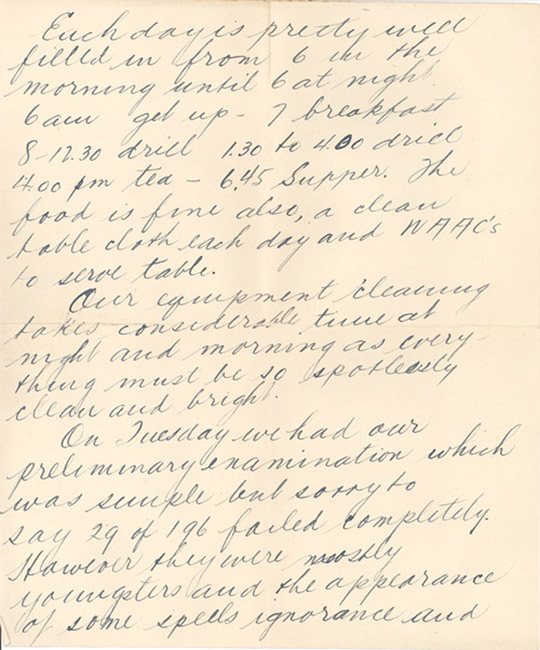 Each day is pretty well
filled in from 6 in the
morning until 6 at night.
6 am get up - 7 breakfast
8-12.30 drill 1.30 to 4.00 drill
4.00 pm tea - 6.45 Supper. The
food is fine also, a clean
table cloth each day and WAAC's
to serve table.
Our equipment cleaning
takes considerable time at
night and morning as every-
thing must be so spotlessly
clean and bright.
On Tuesday we had our
preliminary examination which
was simple but sorry to
say 29 of 196 failed completely.
However they were mostly
youngsters and the appearance
of some spells ignorance and